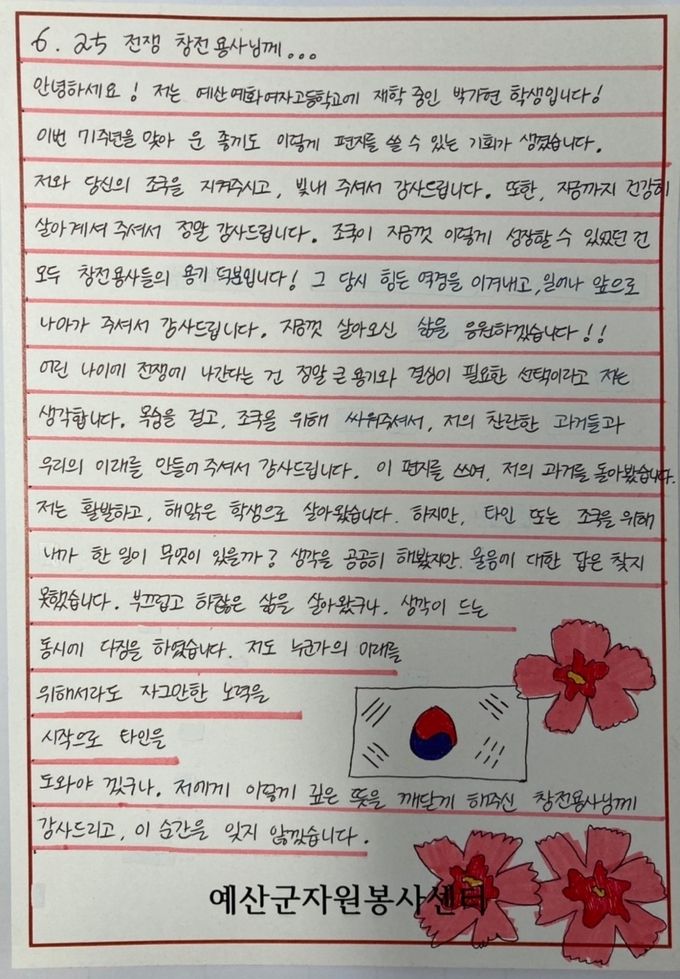 6. 25 전쟁 창전용사님께...
안녕하세요! 저는 예산예화여자고등학교에 재학 중인 박가현 학생입니다!
이번 71주년을 맞아 운 좋기도 이렇게 편지를 쓸 수 있는 기회가 생겼습니다.
저와 당신의 조국을 지켜주시고, 빛내 주셔서 감사드립니다. 또한, 지금까지 건강히
살아계셔 주셔서 정말 감사드립니다. 조국이 지금껏 이렇게 성장할 수 있었던 건
모두 창전용사들의 용기 덕분입니다! 그 당시 힘든 역경을 이겨내고, 일어나 앞으로
나아가 주셔서 감사드립니다. 지금껏 살아오신 삶을 응원하겠습니다!!
어린 나이에 전쟁에 나간다는 건 정말 큰 용기와 결심이 필요한 선택이라고 저는
생각합니다. 목숨을 걸고, 조국을 위해 싸워주셔서, 저의 찬란한 과거들과
우리의 미래를 만들어 주셔서 감사드립니다. 이 편지를 쓰며, 저의 과거를 돌아봤습니다.
저는 활발하고, 해맑은 학생으로 살아왔습니다. 하지만, 타인 또는 조국을 위해
내가 한 일이 무엇이 있을까? 생각을 곰곰히 해봤지만, 물음에 대한 답은 찾지
못했습니다. 부끄럽고 하찮은 삶을 살아왔구나, 생각이 드는
동시에 다짐을 하였습니다. 저도 누군가의 미래를
위해서라도 자그만한 노력을
시작으로 타인을
도와야 겠구나. 저에게 이렇게 깊은 뜻을 깨닫게 해주신 창전용사님께
감사드리고, 이 순간을 잊지 않겠습니다.
예산군자원봉사센터